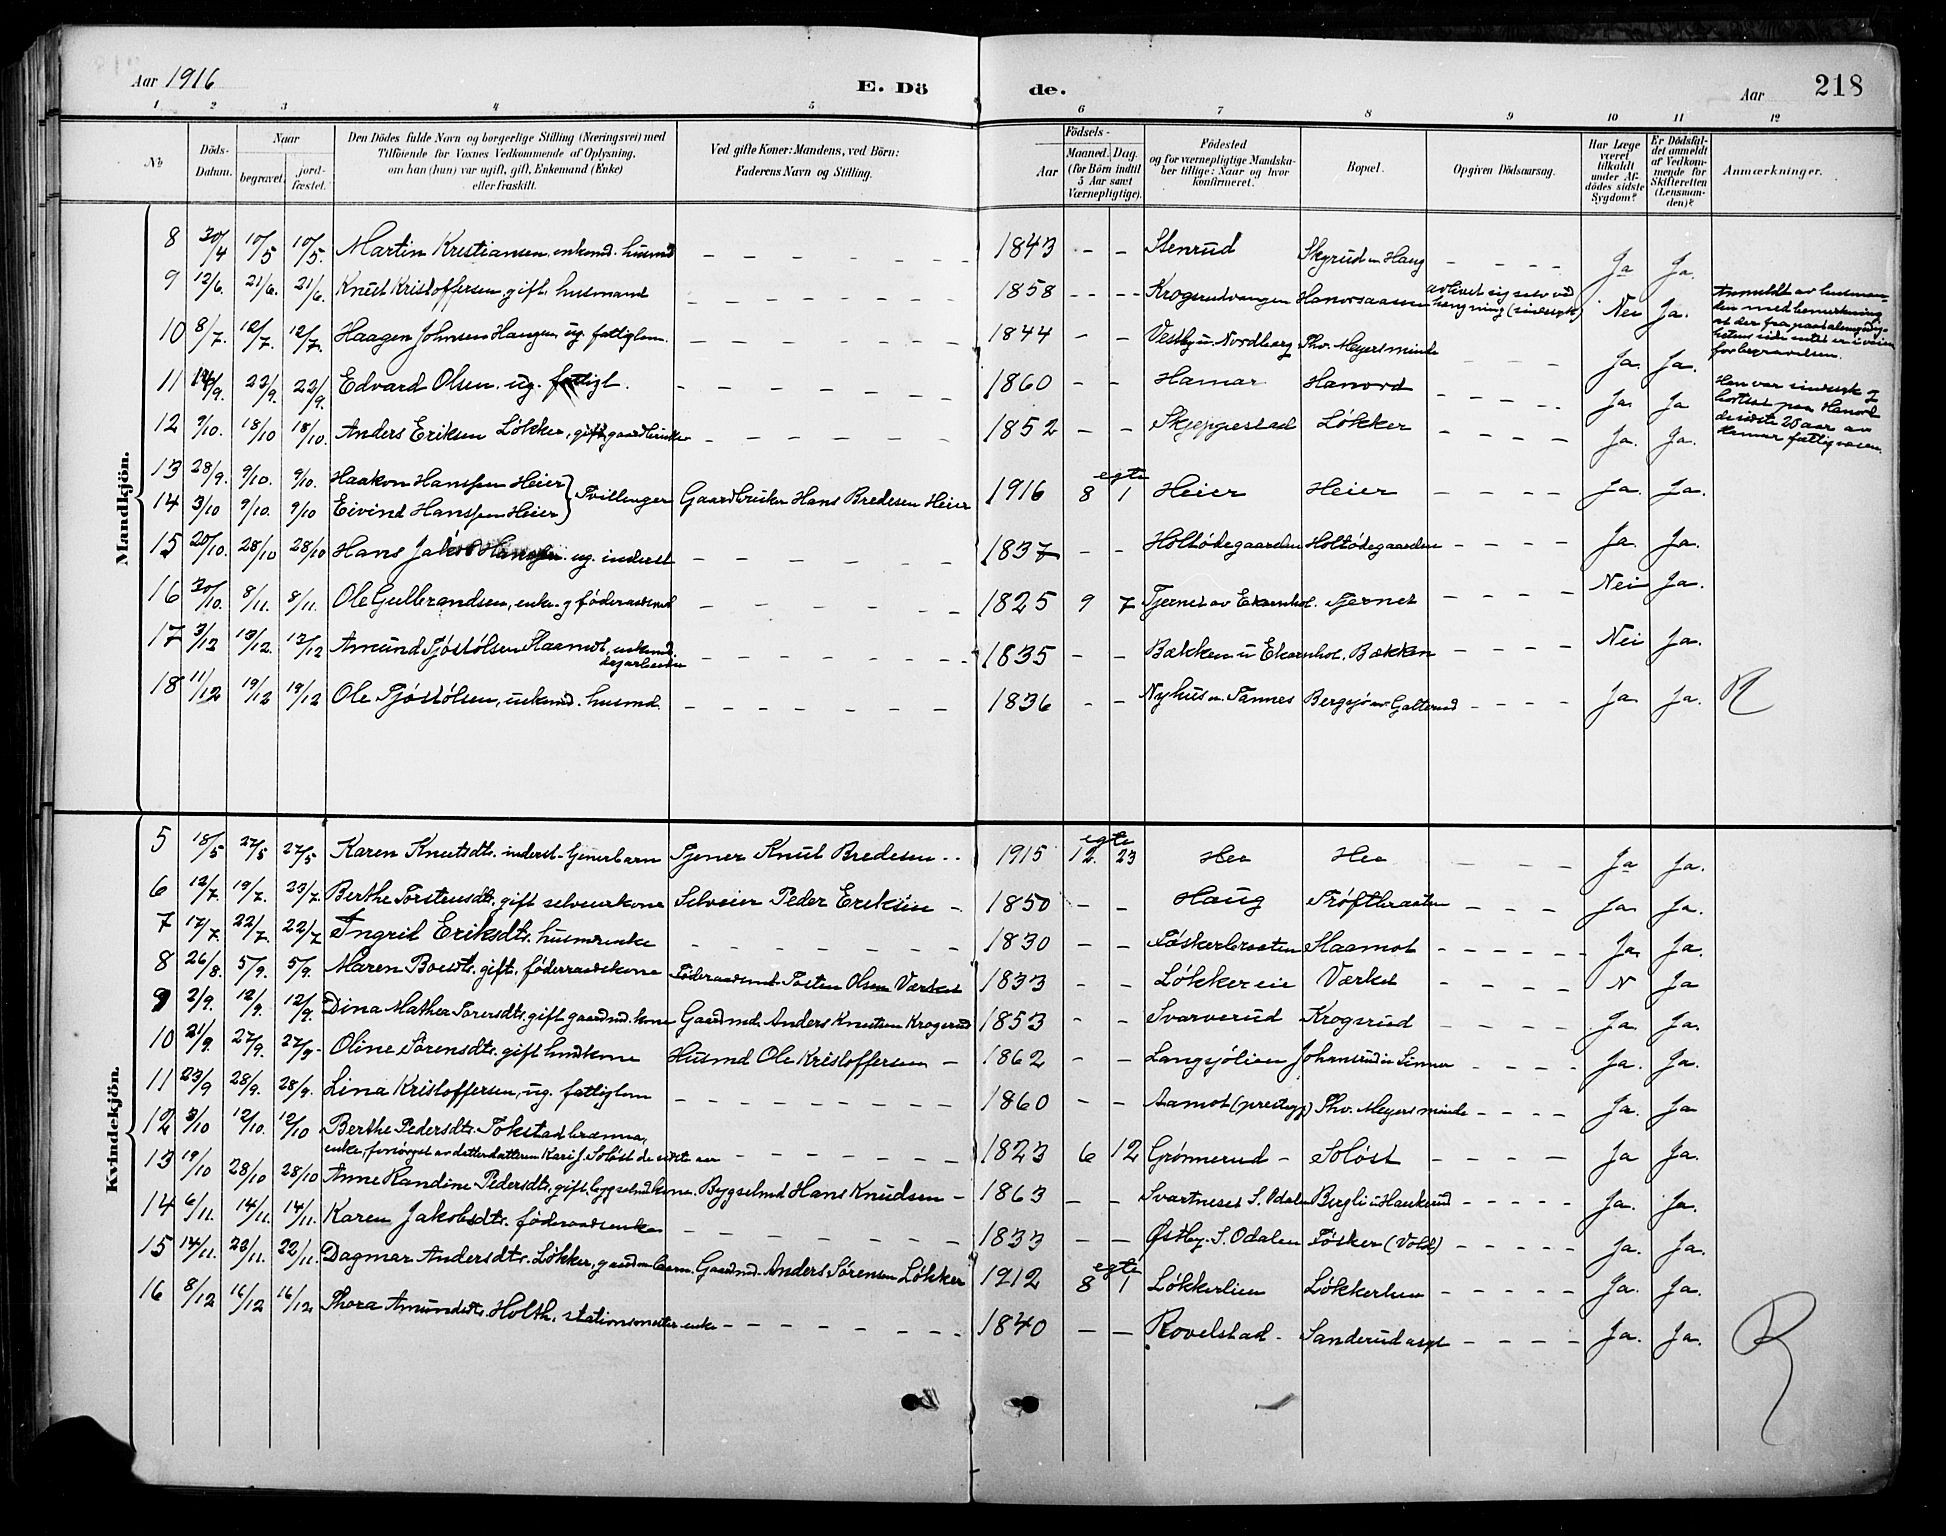 Aar 1916 E. Dö de. Aar 218
1 2 3 4 5 6 7 8 9 10 11 12
No Döds-Datum. Naar begravet. jord-fæstet. Den Dödes fulde Navn og borgerlige Stilling (Næringsvei) med Tilföiende for Voxnes Vedkommende af Oplysning, om han (hun) var ugift, gift, Enkemand (Enke) eller fraskilt. Ved gifte Koner: Mandens, ved Börn: Faderens Navn og Stilling. Födsels- Aar Maaned. Dag. (for Börn indtil 5 Aar samt Værnepligtige). Födested og for værnepligtige Mandskaber tillige: Naar og hvor konfirmeret. Bopæl. Opgiven Dödsaarsag. Har Læge været tilkaldt under Afdödes sidste Sygdom? Er Dödsfaldet anmeldt af Vedkommende for Skifteretten (Lensmanden)? Anmærkninger.
Mandkjön.
8 30/4 10/5 10/5 Martin Kristiansen, enkemd. husmd – – – – – – 1843 – – Stenrud Skyrud u Haug – – – – Ja Ja.
9 12/6. 21/6. 21/6. Knut Kristoffersen, gift, husmand – – – – – – 1858 – – – – Krogsrudvangen Hanorsaasen avlivet sig selv ved hængning (sindssyk) Nei Ja. Anmeldt av lensmanden med bemerkning at der fra paatalemyndighetens side intet er i veien for begravelsen.
10 8/7. 12/7. 12/7. Haagen Johnsen Haugen, ug. fattiglem. – – – – – – 1844 – – Vestby u. Nordberg Phv. Meyersminde – – – Ja. Ja.
11 14/9. 22/9. 22/9. Edvard Olsen. ug. fattigl. – – – – – – 1860 – – Hamar Hanord – – – – Ja. Ja Han var sindssyk og bortsat paa Hanord de sidste 20 aar av Hamar fattigvæsen.
12 9/10. 18/10 18/10. Anders Eriksen Løkker, gift gaardbruker – – – – – – 1852 – – Skjeppestad Løkker Ja. Ja.
13 28/9. 9/10. 9/10. Haakon Hanssen Heier } Tvillinger Gaardbruker Hans Bredesen Heier 1916 egte 8 1 Heier Heier – – – – Ja. Ja.
14 3/10 9/10. 9/10 Eivind Hanssen Heier }
15 20/10. 28/10 28/10 Hans Jakob Hanssen ug. inderst – – – – – – 1837 – – Holtødegaarden Holtødegaarden – – – – Ja. Ja.
16 30/10. 8/11. 8/11. Ole Gulbrandsen, enke- og føderaadsmd – – – – – – 1825 9 7 Tjernet av Ekornhol. Tjernet – – – – Nei Ja.
17 3/12 13/12. 13/12 Amund Tjøstølsen Haamot, enkemd. dagarbeider – – – – – – 1835 – – Bækken u Ekornhol. Bækken – – – – Nei Ja.
18 11/12 19/12 19/12 Ole Tjøstølsen, enkemd. husmd. – – – – – – 1836 – – Nyhus u. Tannes Bergsjø av Galterud – – – – Ja Ja. R
Kvindekjön.
5 18/5 27/5 27/5 Karen Knutsdt. inderst- tjenerbarn Tjener Knut Bredesen – – 1915 egte 12. 23 Hee Hee – – – – Ja Ja.
6 12/7. 19/7. 23/7. Berthe Torstensdt. gift selveierkone Selveier Peder Eriksen – 1850 – – Haug Trøftbraaten – – – Ja. Ja.
7 17/7. 22/7. 22/7 Ingrid Eriksdt. husmdsenke – – – – – – 1830 – – Føskerbraaten Haamot – – – – Ja. Ja.
8 26/8. 5/9. 5/9. Maren Boesdt. gift. føderaadskone Føderaadsmd. Tosten Olsen Værket 1833 – – Løkker eie Værket – – – – N Ja
9 2/9. 12/9. 12/9. Dina Mathea Torersdt. gift gaardmd. kone Gaardmd. Anders Knutsen Krogsrud 1853 – – Svarverud Krogsrud – – – – Ja. Ja.
10 21/9. 27/9. 27/9. Oline Sörensdt. gift husmdkone Husmd Ole Kristoffersen – 1862 – – Langsjølien Johnsrud – – – – Ja. Ja.
11 23/9 28/9. 28/9. Lina Kristoffersen, ug. fattiglem – – – – – – 1860 – – Aamot (prestegj) Phv. Meyersminde – – – – Ja. Ja
12 3/10 12/10. 12/10 Berthe Pedersdt. Tokstadbrænna, enke, forsørget av datterdatteren Kari J. Soløst de sidste aar – – – – – – 1823 6 12 Grønnerud – Soløst – – – – Ja Ja.
13 19/10 28/10 28/10 Anne Randine Pedersdt. gift bygselmdkone. Bygselmd Hans Knudsen – 1863 – – Svartneset S. Odalen Bergli u Haukerud – – – – Ja. Ja.
14 6/11. 14/11. 14/11. Karen Jakobsdt. føderaadsenke – – – – – – 1833 – – Østby. S. Odalen Føsker (Vold) – – – – Ja. Ja.
15 14/11. 23/11. 22/11. Dagmar Andersdt. Løkker, gaardm. barn. Gaardmd. Anders Sørensen Løkker 1912 egte 8 1 Løkkerlien Løkkerlien – – – – Ja. Ja.
16 8/12 16/12 16/12 Thora Amundsdt. Holth. stationsmester enke – – – – – – 1840 – – Rovelstad – Sanderud asyl – – – – Ja. Ja. R